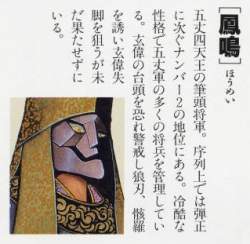 ［鳳鳴］ほうめい
五丈四天王の筆頭将軍。序列上では弾正
に次ぐナンバー2の地位にある。冷酷な
性格で五丈軍の多くの将兵を管理してい
る。玄偉の台頭を恐れ警戒し狼刃、骸羅
を誘い玄偉失
脚を狙うが未
だ果たせずに
いる。